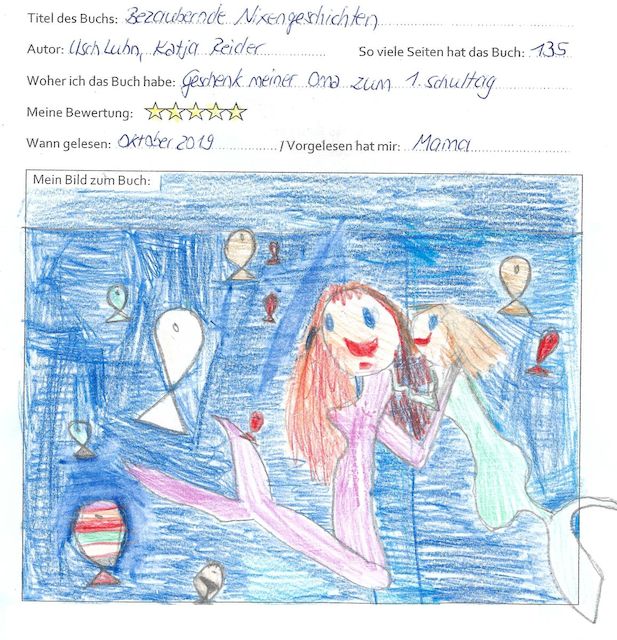 Titel des Buchs: Bezaubernde Nixengeschichten
Autor: Usch Luhn, Katja Reider So viele Seiten hat das Buch: 135
Woher ich das Buch habe: Geschenk meiner Oma zum 1. Schultag
Meine Bewertung:
Wann gelesen: Oktober 2019 / Vorgelesen hat mir: Mama
Mein Bild zum Buch: